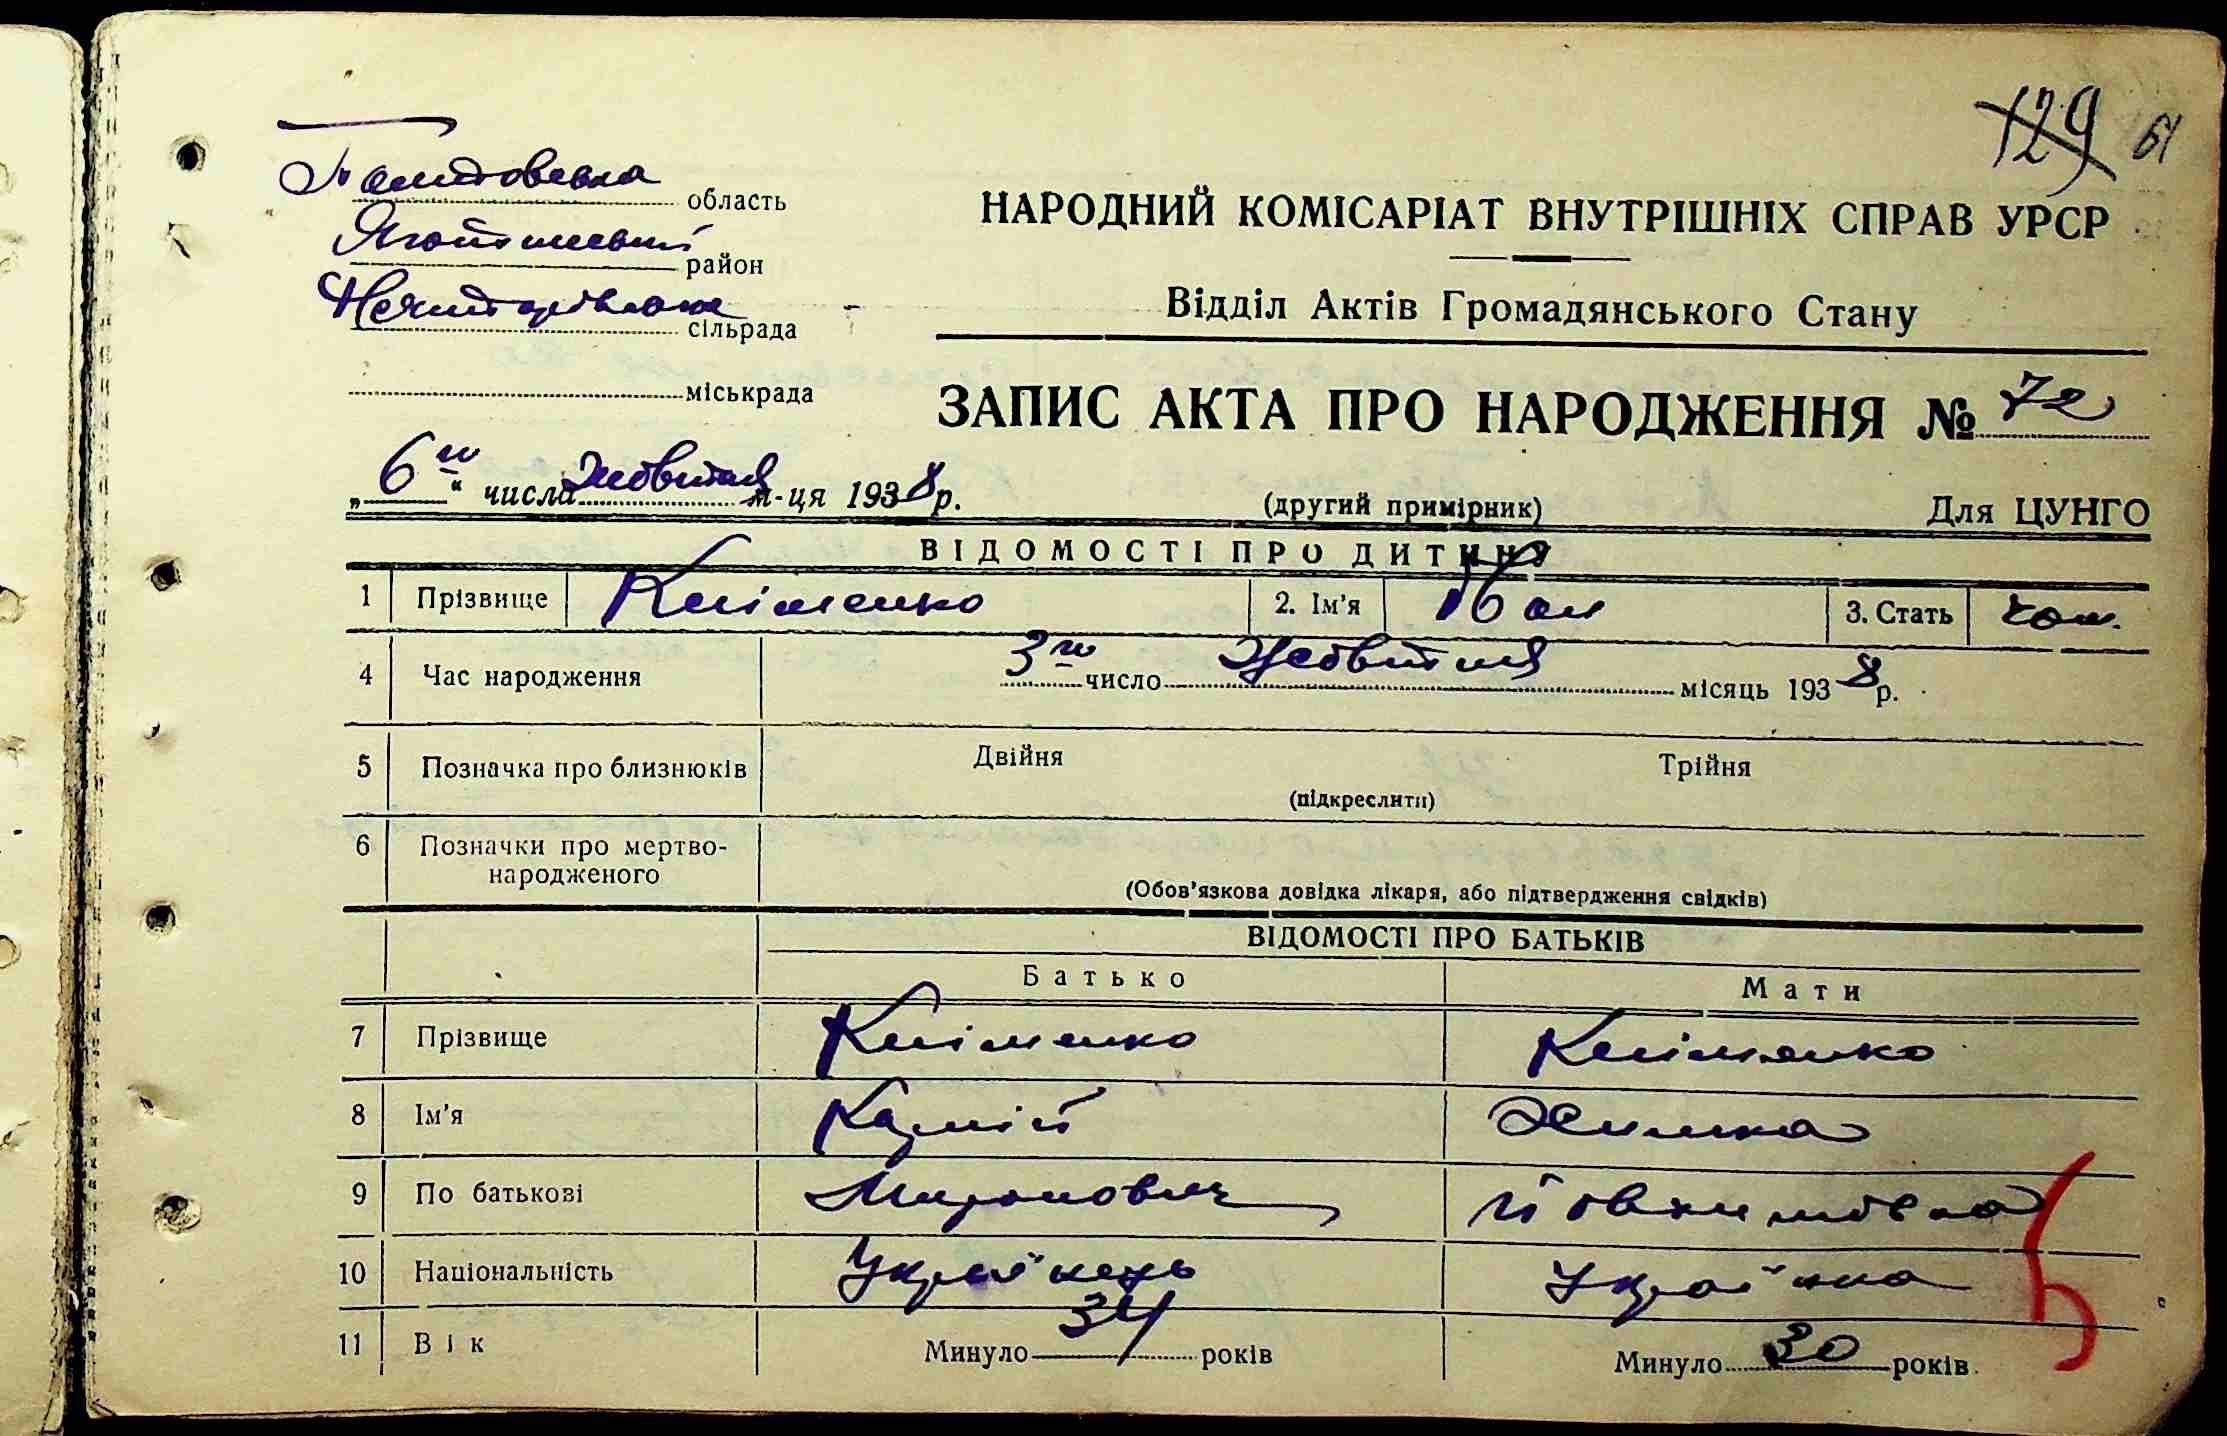 129 61
Полтавська область
Яготинський район
Нечипорівська сільрада
міськрада
НАРОДНИЙ КОМІСАРІАТ ВНУТРІШНІХ СПРАВ УРСР
Відділ Актів Громадянського Стану
ЗАПИС АКТА ПРО НАРОДЖЕННЯ № 72
„6го“ числа Жовтня м-ця 1938 р.
(другий примірник)
Для ЦУНГО
ВІДОМОСТІ ПРО ДИТИНУ
1 Прізвище Кліменко 2. Ім'я Іван 3. Стать чол.
4 Час народження 3го число Жовтня місяць 1938 р.
5 Позначка про близнюків Двійня Трійня
(підкреслити)
6 Позначки про мертво-
народженого
(Обов'язкова довідка лікаря, або підтвердження свідків)
ВІДОМОСТІ ПРО БАТЬКІВ
Батько Мати
7 Прізвище Кліменко Кліменко
8 Ім'я Химка
9 По батькові Миронович
10 Національність Українець Українка
11 Вік Минуло 34 років Минуло 30 років